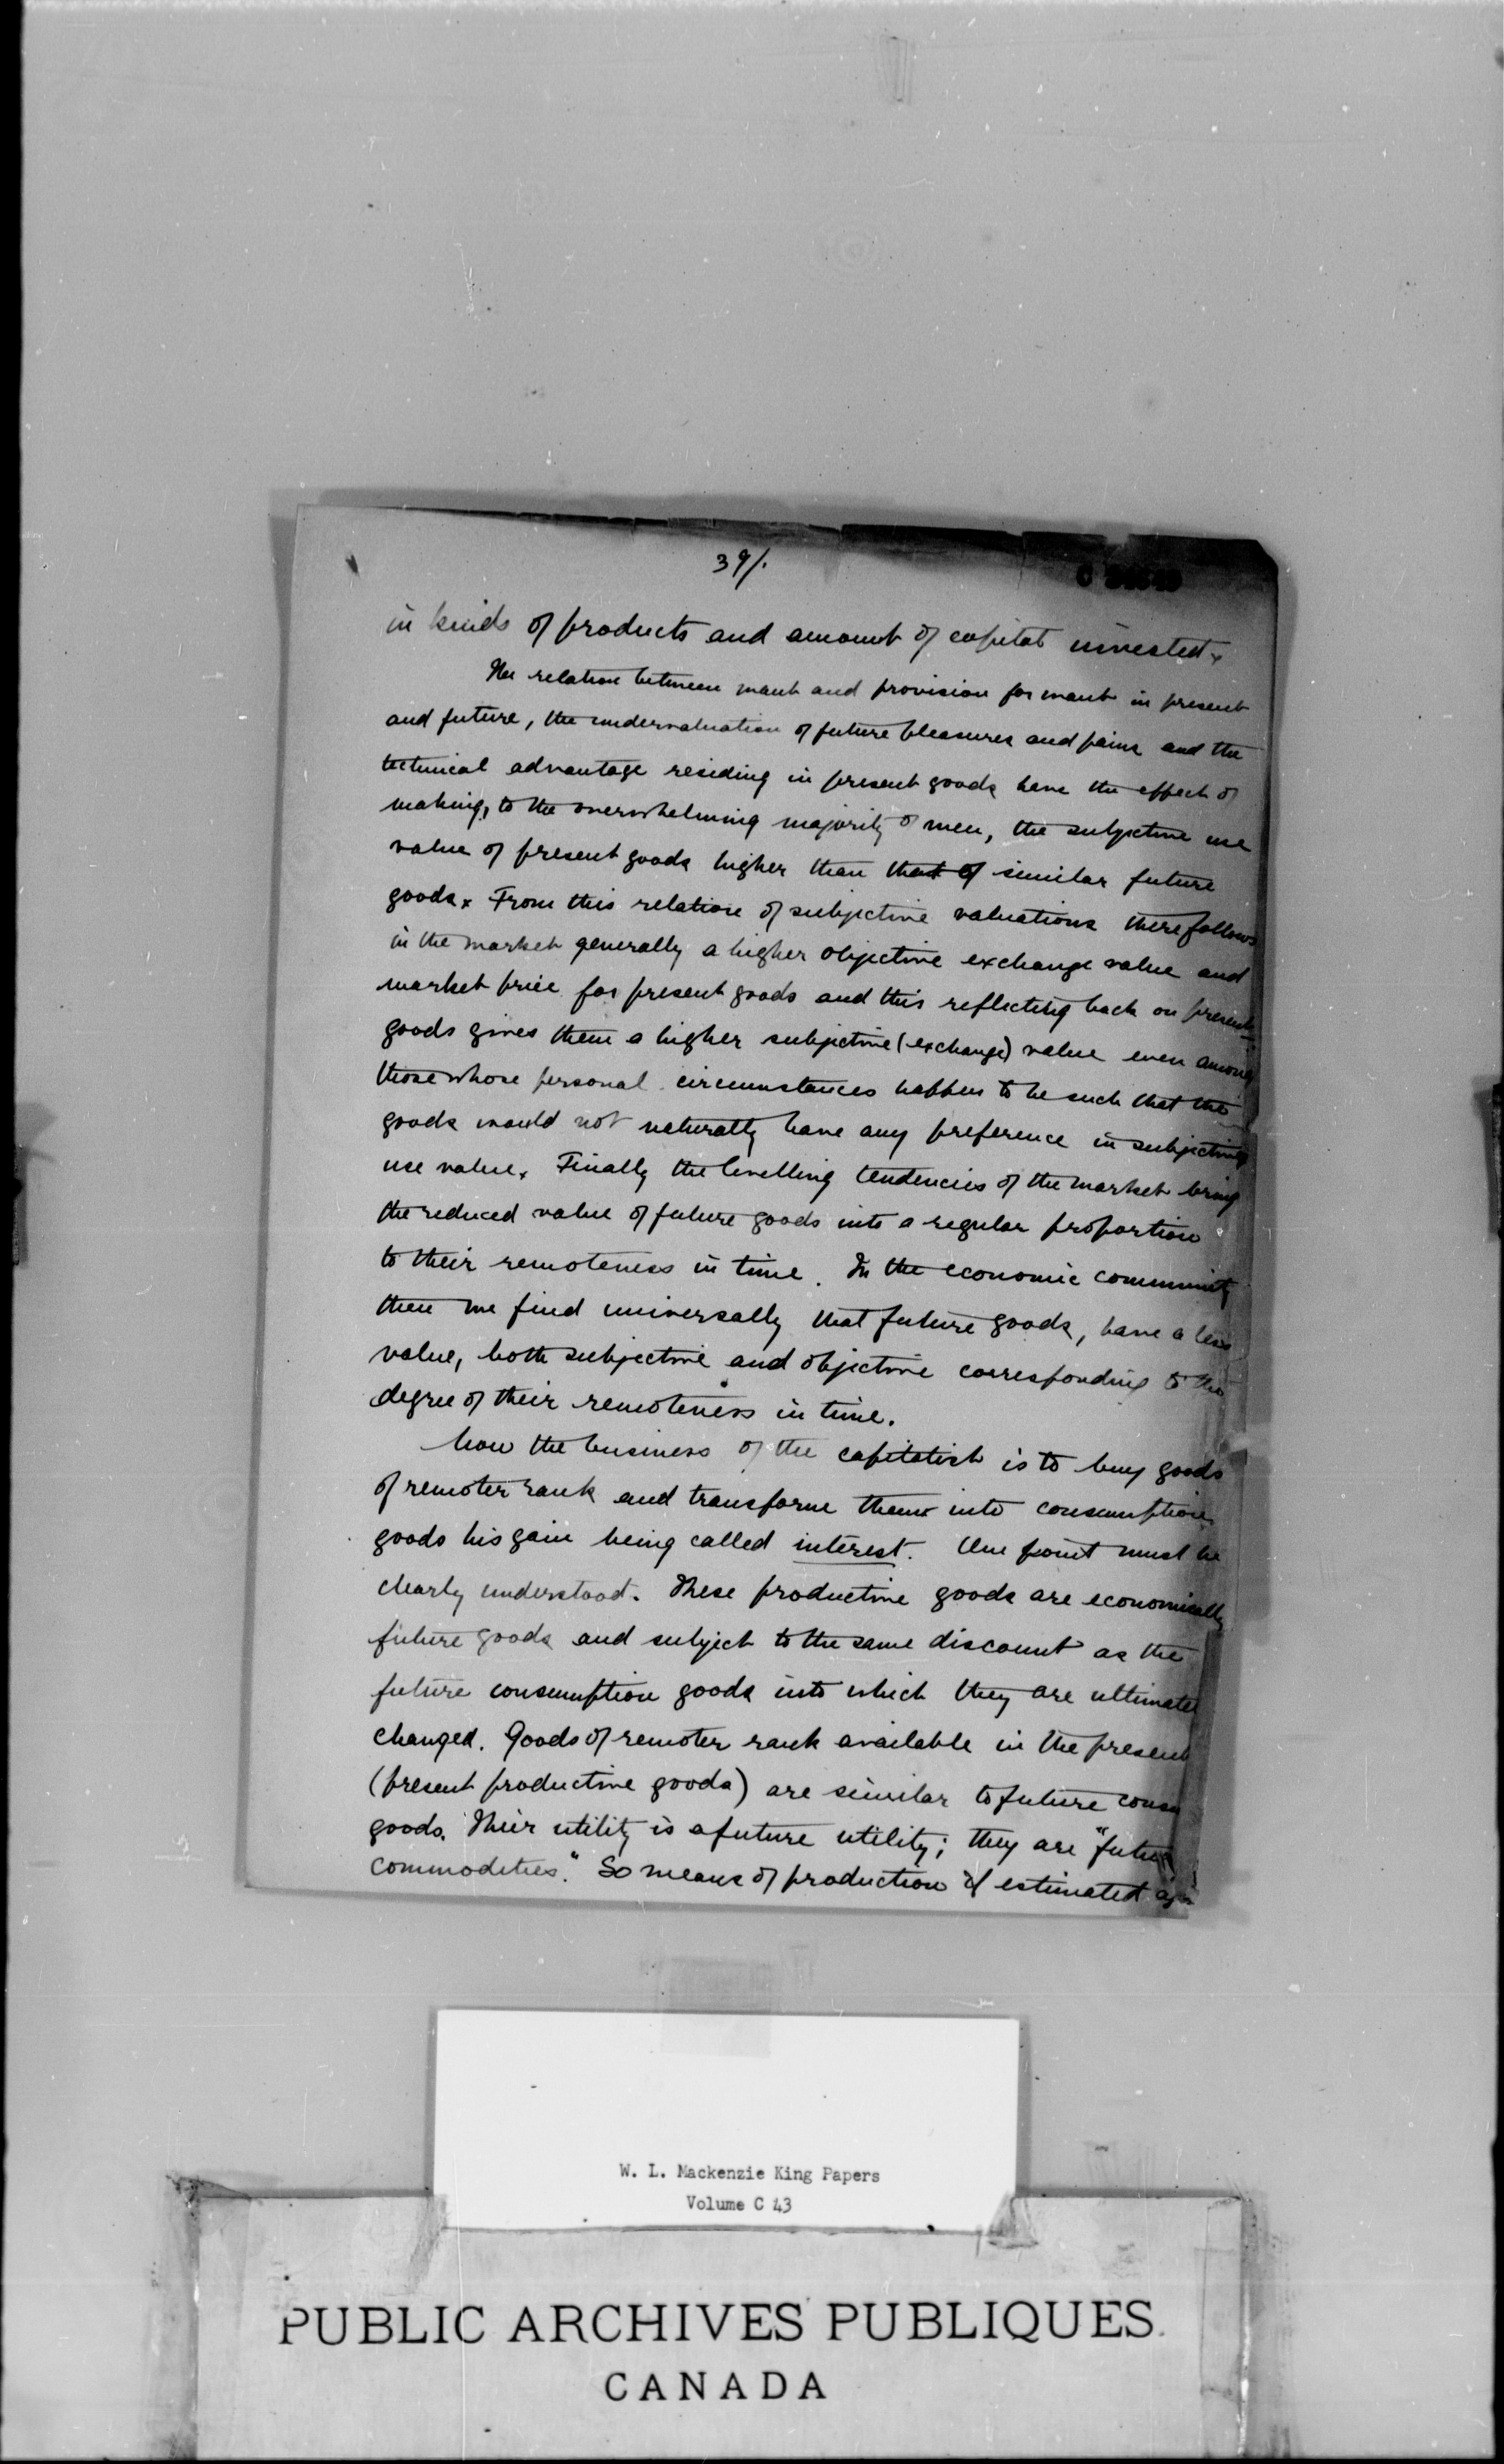 39/.
in kinds of products and amount of capital invested.
The relation between want and provision for want in present
and future, the undervaluation of future pleasures and pains and the
technical advantage residing in present goods have the effect of
making, to the overwhelming majority of men, the subjective use
value of present goods higher than that of similar future
goods. From this relation of subjective valuations there follows
in the market generally a higher objective exchange value and
market price for present goods and this reflecting back on present
goods gives them a higher subjective (exchange) value even among
those whose personal circumstances happen to be such that the
goods would not naturally have any preference in subjective
use value. Finally the levelling tendencies of the market bring
the reduced value of future goods into a regular proportion
to their remoteness in time. In the economic community
then we find universally that future goods, have a less
value, both subjective and objective corresponding to the
degree of their remoteness in time.
Now the business of the capitalist is to buy goods
of remoter rank and transform them into consumption
goods his gain being called interest. One point must be
clearly understood. These productive goods are economically
future goods and subject to the same discount as the
future consumption goods into which they are ultimately
changed. Goods of remoter rank available in the present
(present productive goods) are similar to future consu
goods. Their utility is a future utility; they are "future
commodities." So means of production if estimated
W. L. Mackenzie King Papers
Volume C 43
PUBLIC ARCHIVES PUBLIQUES
CANADA